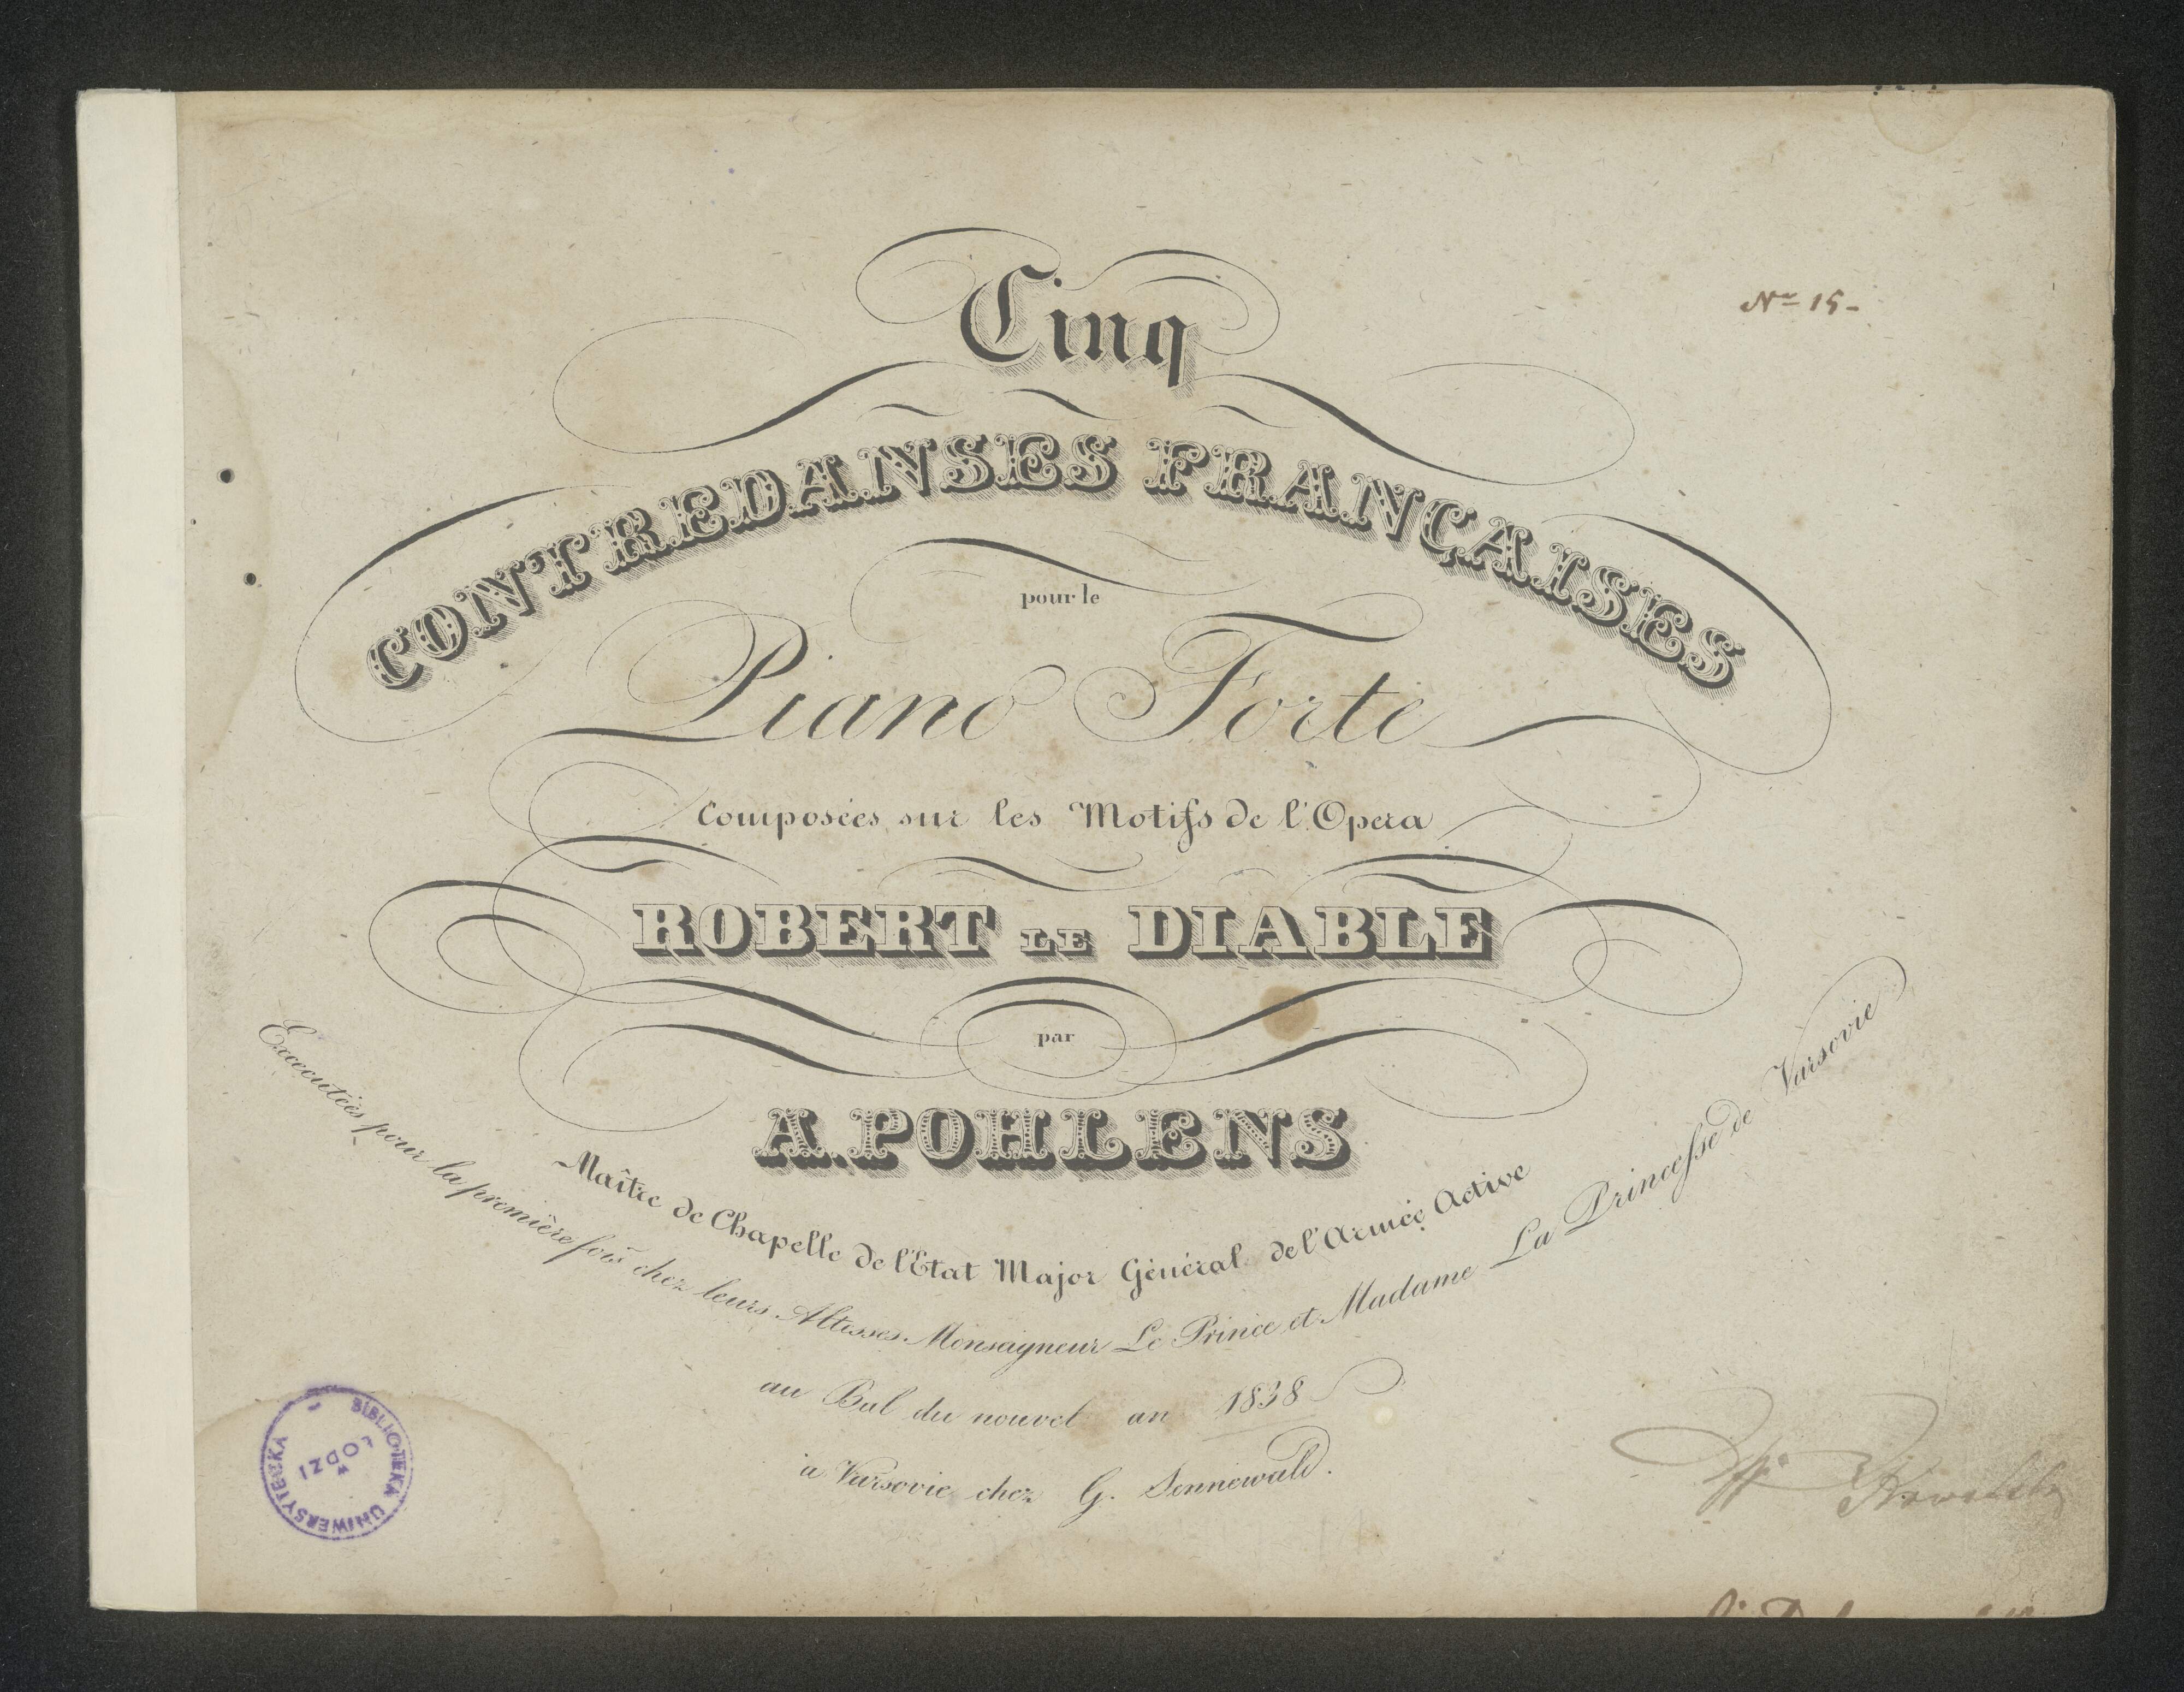 Cinq
Nro 15-
CONTREDANSES FRANÇAISES
pour le
Piano Forte
Composées sur les Motifs de l'Opera
ROBERT LE DIABLE
par
A. POHLENS
Maître de Chapelle de l'Etat Major Général de l'Armée Active
Executées pour la première fois chez leurs Altesses Monseigneur Le Prince et Madame La Princesse de Varsovie
au Bal du nouvel an 1838
a Varsovie chez G. Sennewald.
BIBLIOTEKA UNIWERSYTECKA
ŁODZI